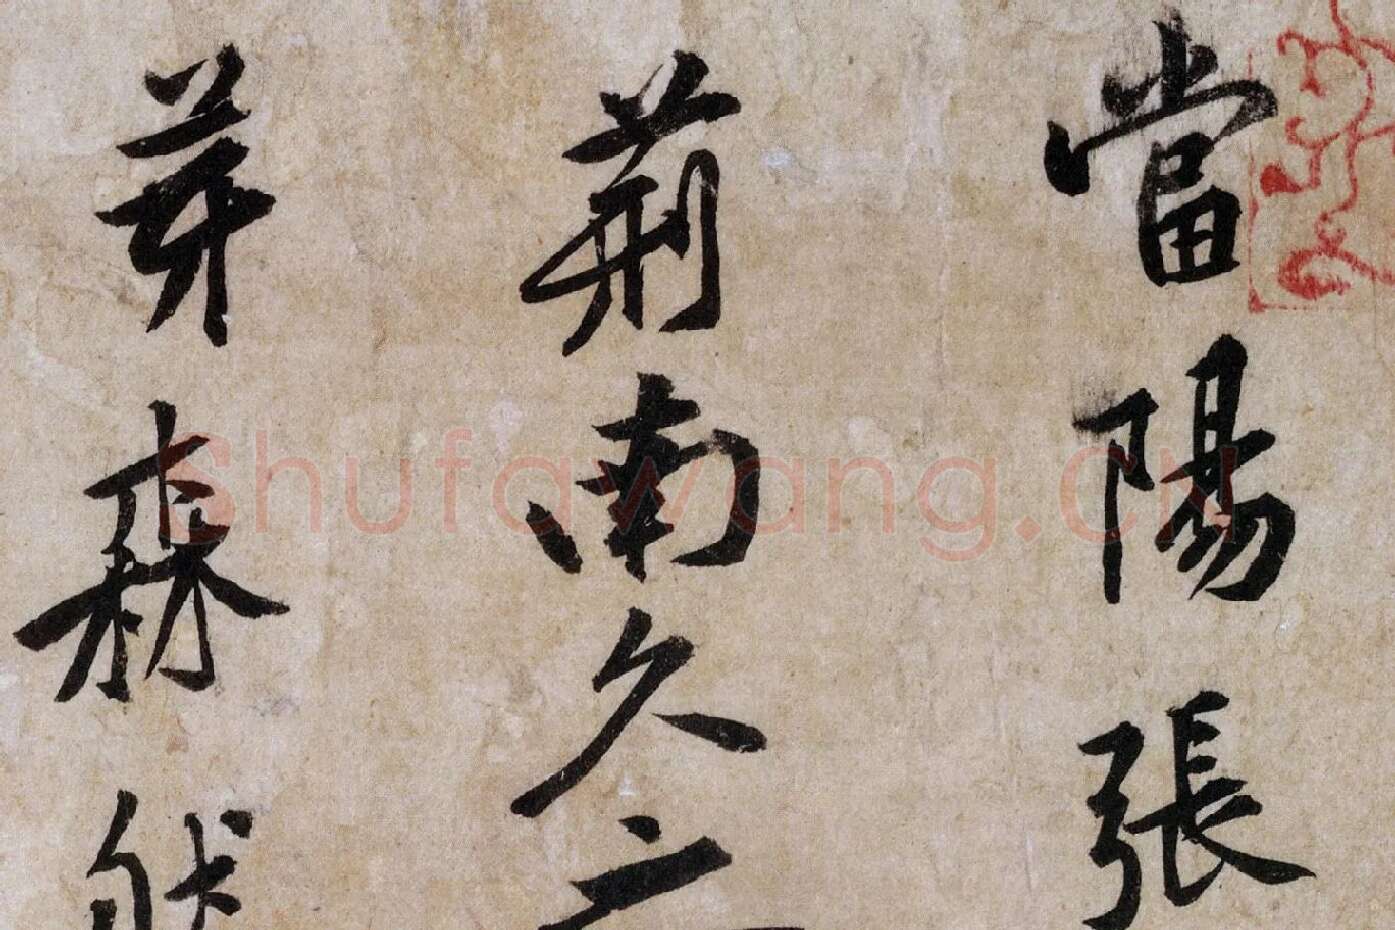 當陽張
荊南久立
芽森然
Shufawang.cn